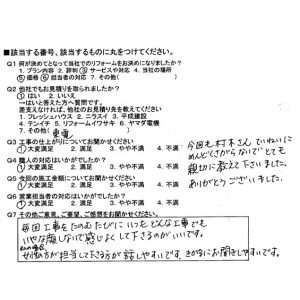 ■該当する番号、該当するものに丸をつけてください。
Q1 何が決めてとなって当社でのリフォームをお決めになりましたか?
1. プラン内容 2. 評判 ③ サービスや対応 4. 当社の場所
⑤ 価格 ⑥ 担当者の対応 7. その他( )
Q2 他社でもお見積を取られましたか?
① はい 2. いいえ
→はいと答えた方へ質問です。
差支えなければ、他社のお見積り先を教えてください
1. フレッシュハウス 2. ニラスイ 3. 平成建設
4. テンイチ 5. リフォームイワサキ 6. ヤマダ電機
7. その他( )
Q3 工事の仕上がりについてお聞かせください
① 大変満足 2. 満足 3. やや不満 4. 不満
Q4 職人の対応はいかがでしたか?
① 大変満足 2. 満足 3. やや不満 4. 不満
Q5 今回の施工金額についてお聞かせください
① 大変満足 2. 満足 3. やや不満 4. 不満
Q6 営業担当者の対応はいかがでしたか?
① 大変満足 2. 満足 3. やや不満 4. 不満
Q7 その他ご意見、ご要望、ご感想をお聞かせください。
今回も村木さん ていねいに
めんどくさがらないでとても
親切に教えて下さいました。
ありがとうございました。
毎回工事をたのむたびに いつも どんな工事でも
いやな顔しないで感じよくして下さるのがいいです。
女性の方が担当して下さる方が 話しやすいです お聞きしやすいです。